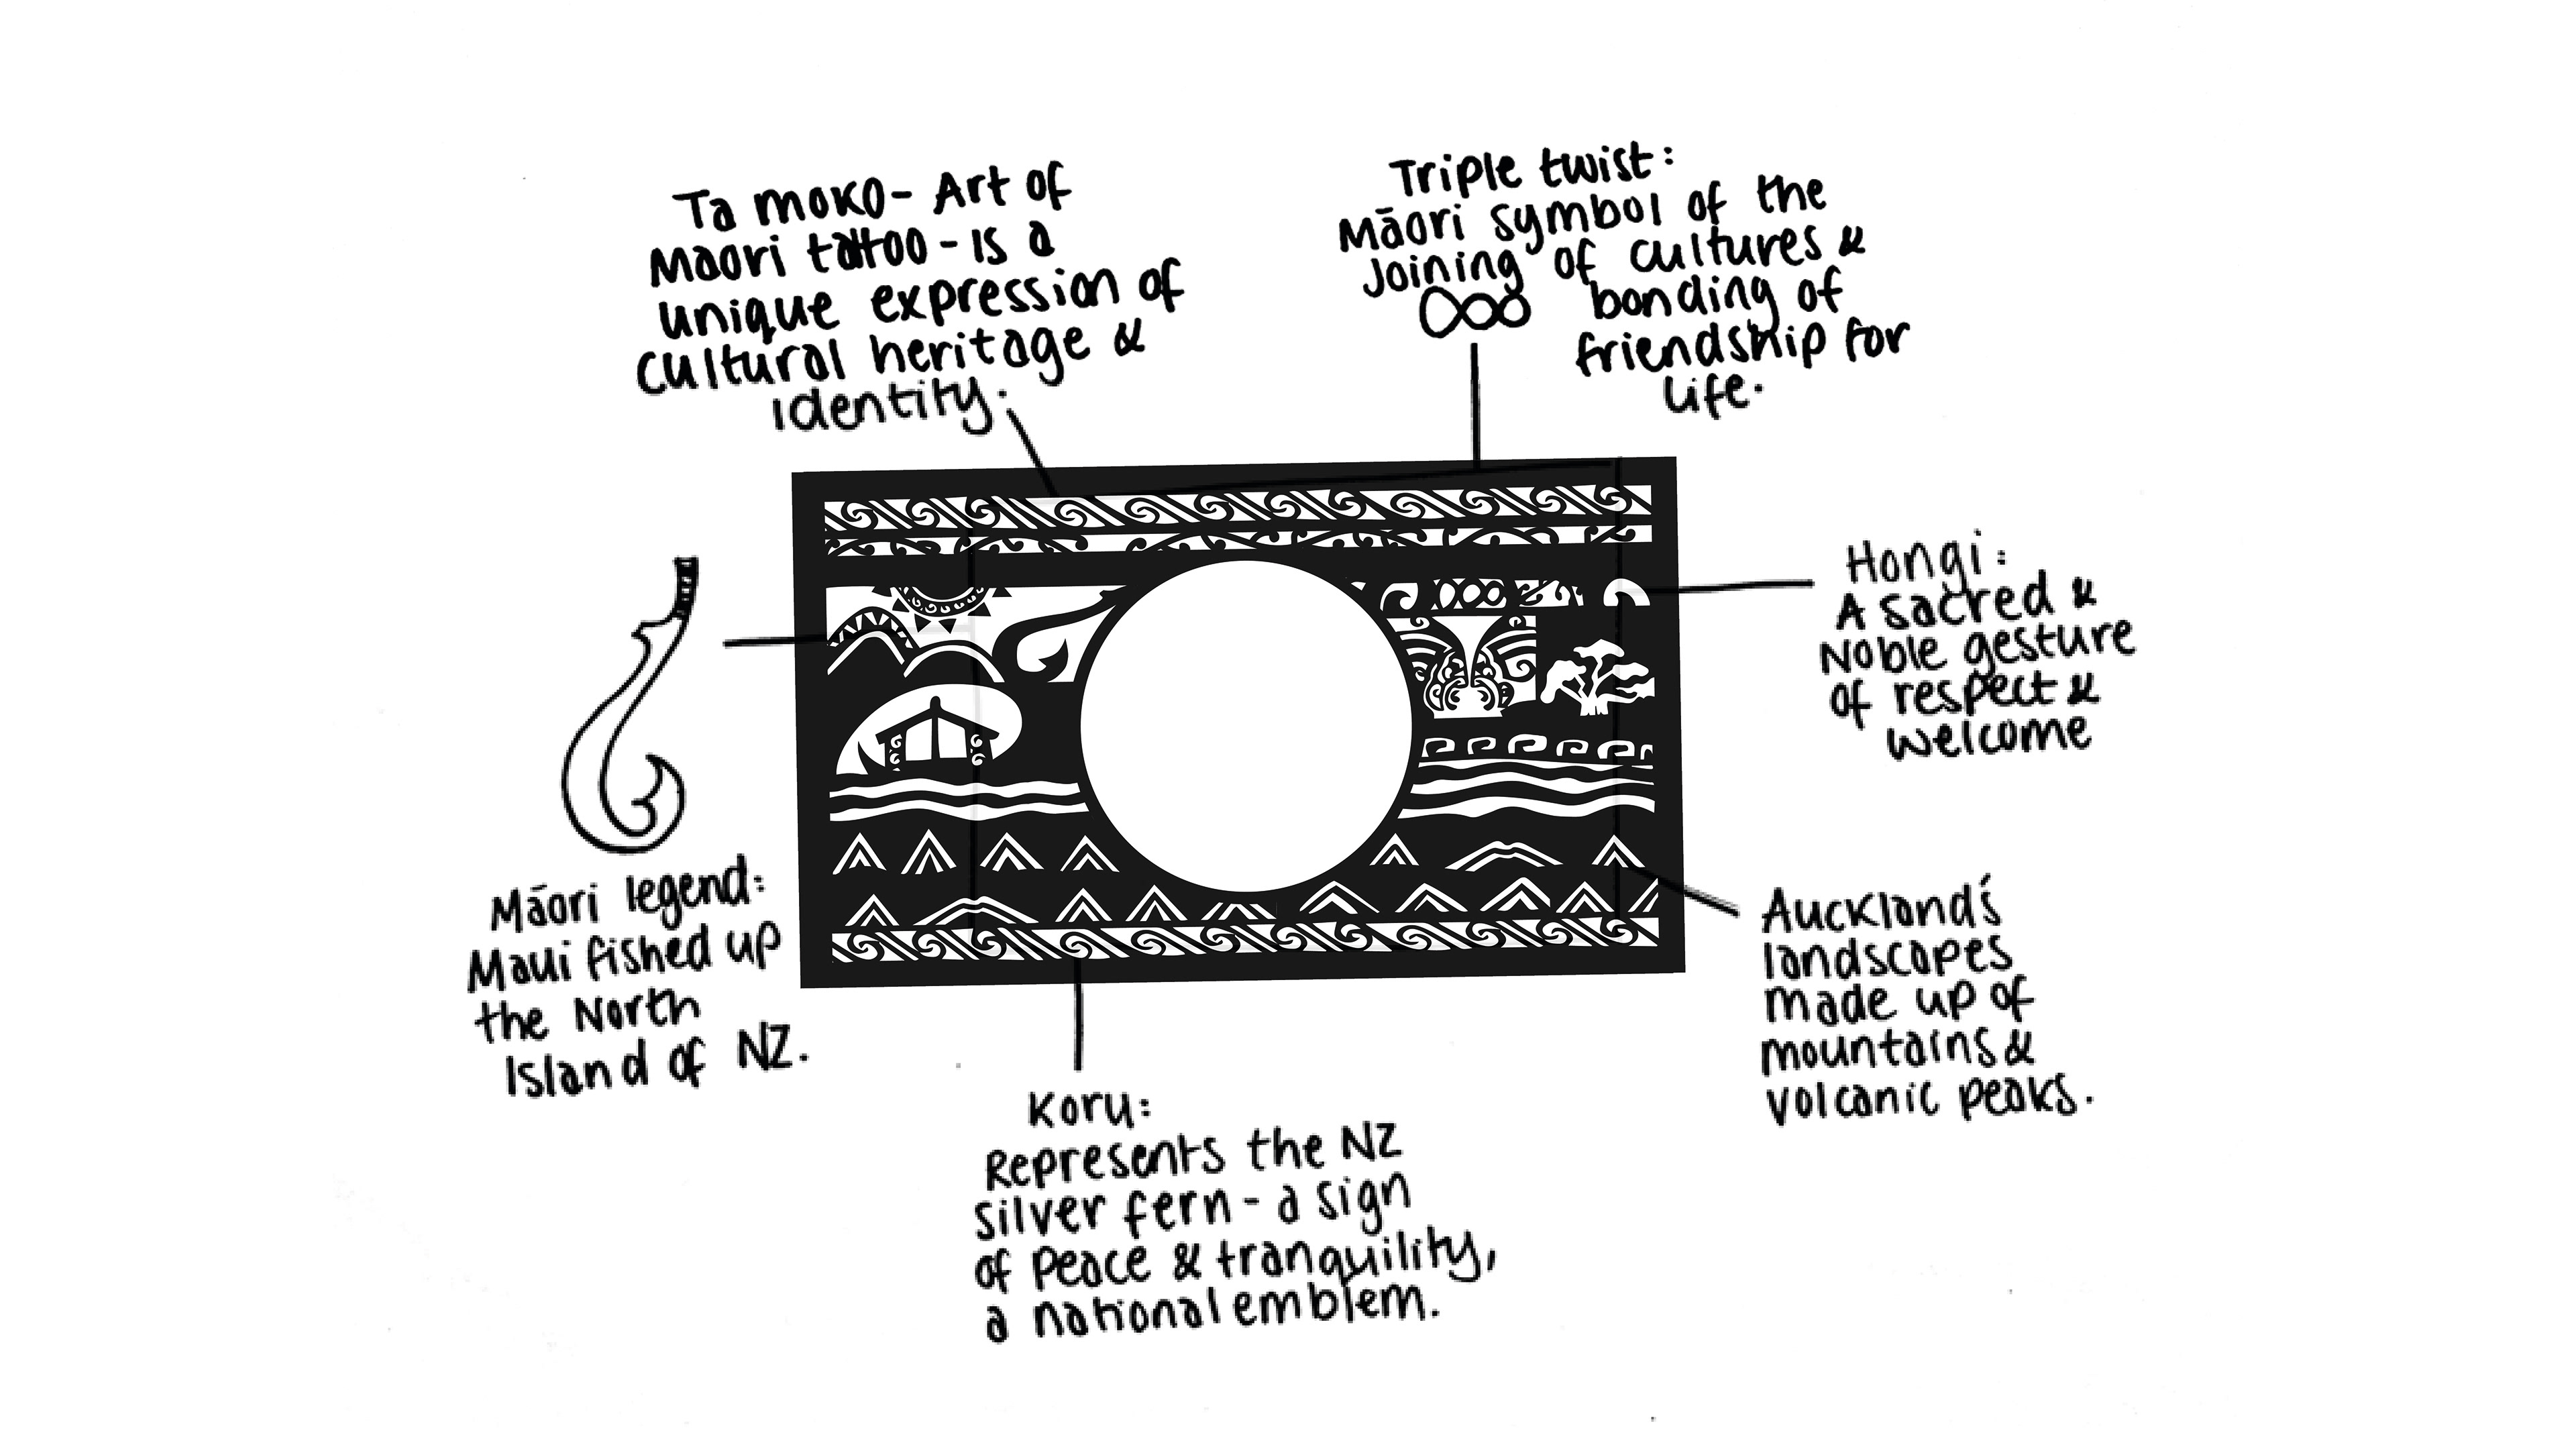 Ta moko- Art of
Maori tattoo - is a
unique expression of
cultural heritage &
identity.
Triple twist:
Māori symbol of the
Joining of cultures &
bonding of
friendship for
life.
Hongi:
A sacred &
Noble gesture
of respect &
welcome
Māori legend:
Maui fished up
the North
Island of NZ.
Auckland's
landscapes
made up of
mountains &
volcanic peaks.
Koru:
Represents the NZ
silver fern - a sign
of Peace & tranquility,
a national emblem.